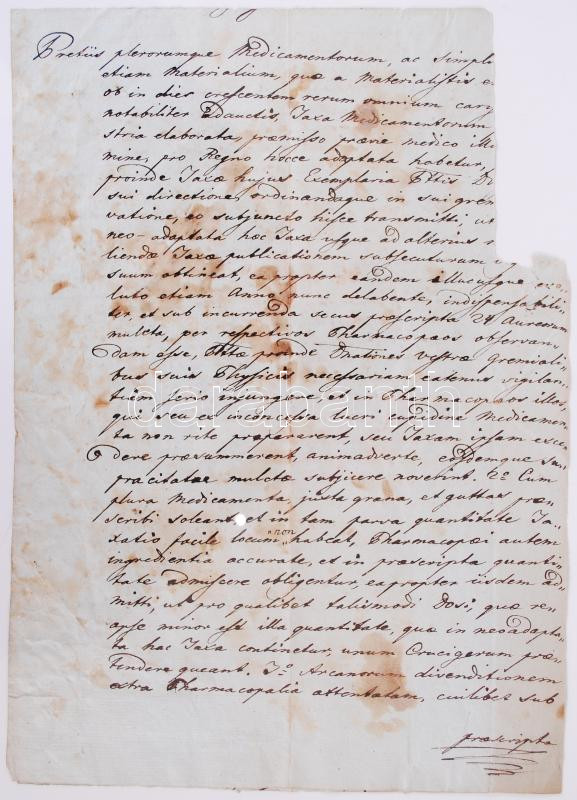 Pretiis plerorumque Medicamentorum, ac Simpli
etiam Materialium, quæ a Materialistis e
ob in dies crescentem rerum omnium cari
notabiliter adauctis, Taxa Medicamentorum
stria elaborata, præmisso prævie medico Illi
mine, pro Regno hocce adaptata habetur,
proinde Taxæ hujus Exemplaria Ettis D
sui directione, ordinandaque in sui grem
vatione, eo subjuncto hisce transmitti ut
neo-adaptata hæc Taxa usque ad alterius
liendæ Taxæ publicationem subsecuturam
suum obtineat, eapropter eandem illucusque
luto etiam Anno nunc delabente, indispensabili-
ter, et sub incurrenda secus præscripta 24 Aureorum
mulcta, per respectivos Pharmacopæos observan-
dam esse, Ettæ proinde Dnationes Vestræ Gremiali-
bus suis Physicis necessariam eatenus vigilan-
tiam serio injungere, et in Pharmacopæos illos,
qui seu ex inconcessa lucri cupidine Medicamen-
ta non rite præpararent, seu Taxam ipsam exce-
dere præsummerent, animadverte, eosdemque su-
pracitatæ mulctæ subjicere noverint. 2o Cum
plura Medicamenta, juxta grana, et guttas præ-
scribi soleant, et in tam parva quantitate Ta-
xatio facile locum non habeat, Pharmacopæi autem
ingredientia accurate, et in præscripta quanti-
tate admiscere obligentur, eapropter iisdem ad-
mitti, ut pro qualibet talismodi Dosi, quæ re-
apse minor est illa quantitate, quæ in neoadapta-
ta hac Taxa continetur, unum Crucigerum præ-
tendere queant. 3o Arcanorum divenditionem
extra Pharmacopalia attentatam, cuilibet sub
præscripta
darabanth